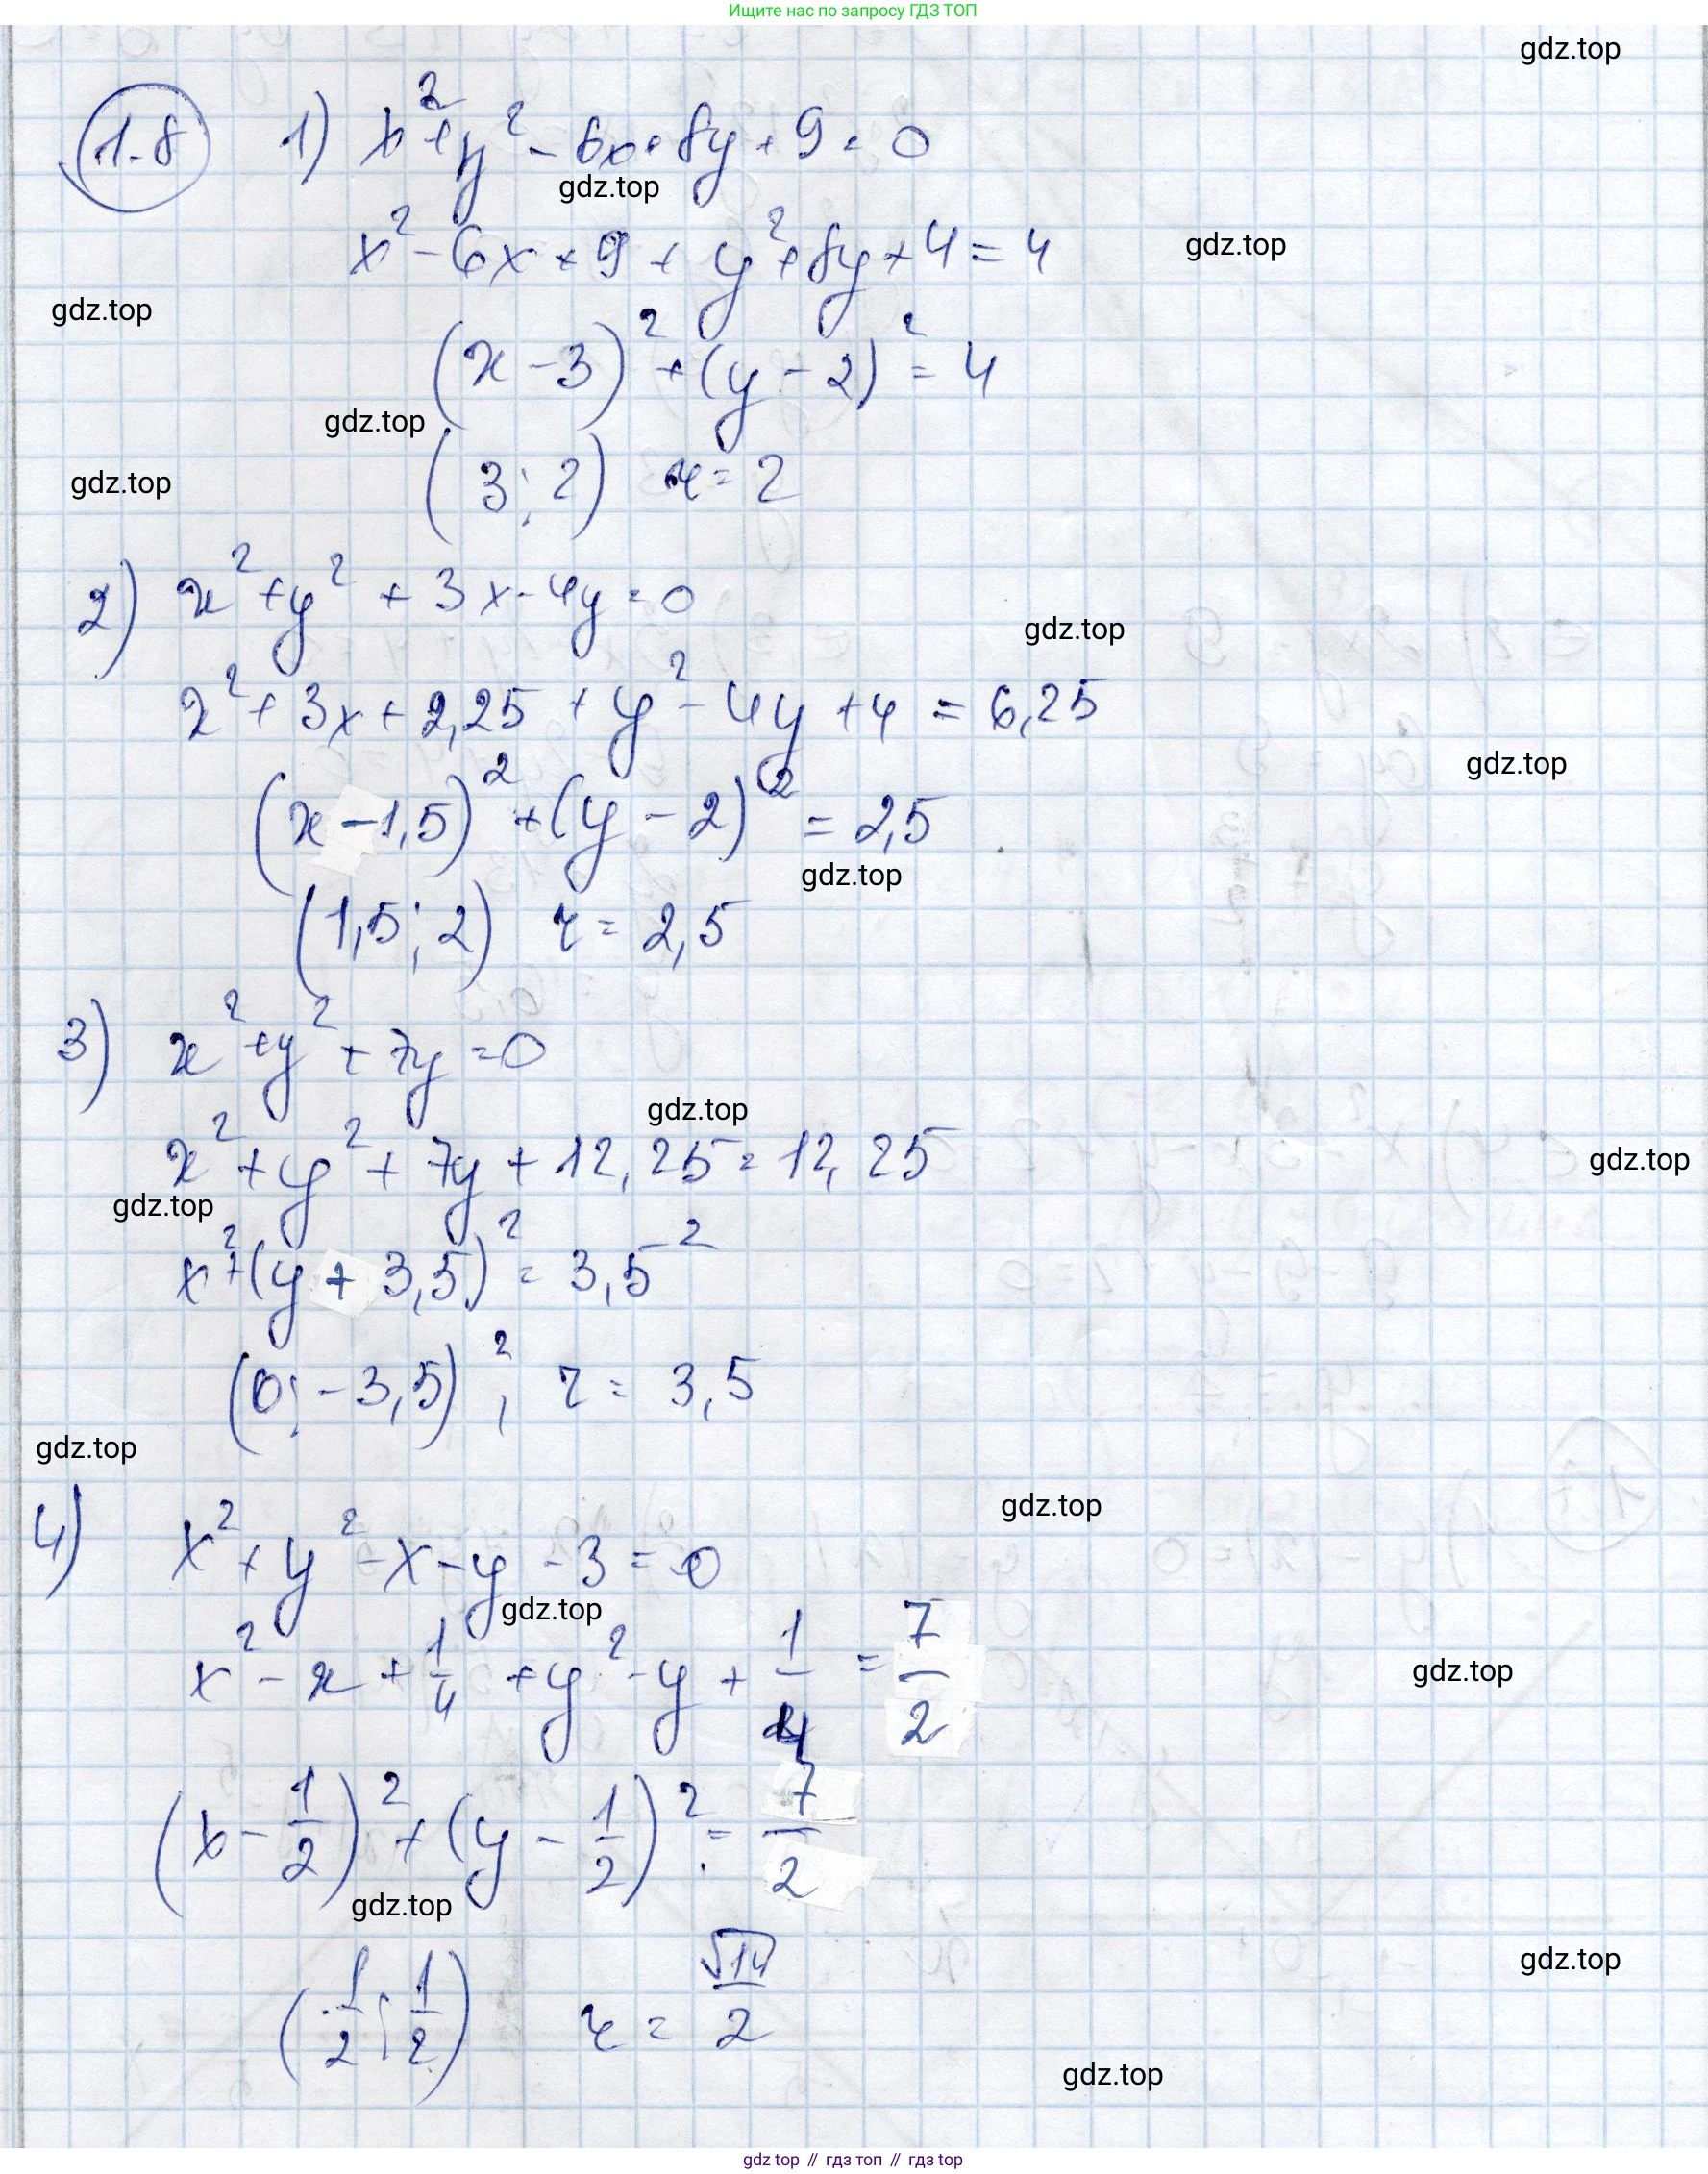 Ищите нас по запросу ГДЗ ТОП
gdz.top
1.8 1) x² + y² - 6x + 8y + 9 = 0
gdz.top
x² - 6x + 9 + y² + 8y + 4 = 4
gdz.top
gdz.top
(x - 3)² + (y - 2)² = 4
gdz.top
(3; 2) r = 2
gdz.top
2) x² + y² + 3x - 4y = 0
gdz.top
x² + 3x + 2,25 + y² - 4y + 4 = 6,25
gdz.top
(x - 1,5)² + (y - 2)² = 2,5
gdz.top
(1,5; 2) r = 2,5
3) x² + y² + 7y = 0
gdz.top
x² + y² + 7y + 12,25 = 12,25
gdz.top
gdz.top
x² + (y + 3,5)² = 3,5²
(0; -3,5)², r = 3,5
gdz.top
gdz.top
4) x² + y² - x - y - 3 = 0
gdz.top
x² - x + 1/4 + y² - y + 1/4 = 7/2
gdz.top
(x - 1/2)² + (y - 1/2)² = 7/2
gdz.top
gdz.top
(1/2; 1/2) r = √14/2
gdz.top
gdz top // гдз топ // гдз top